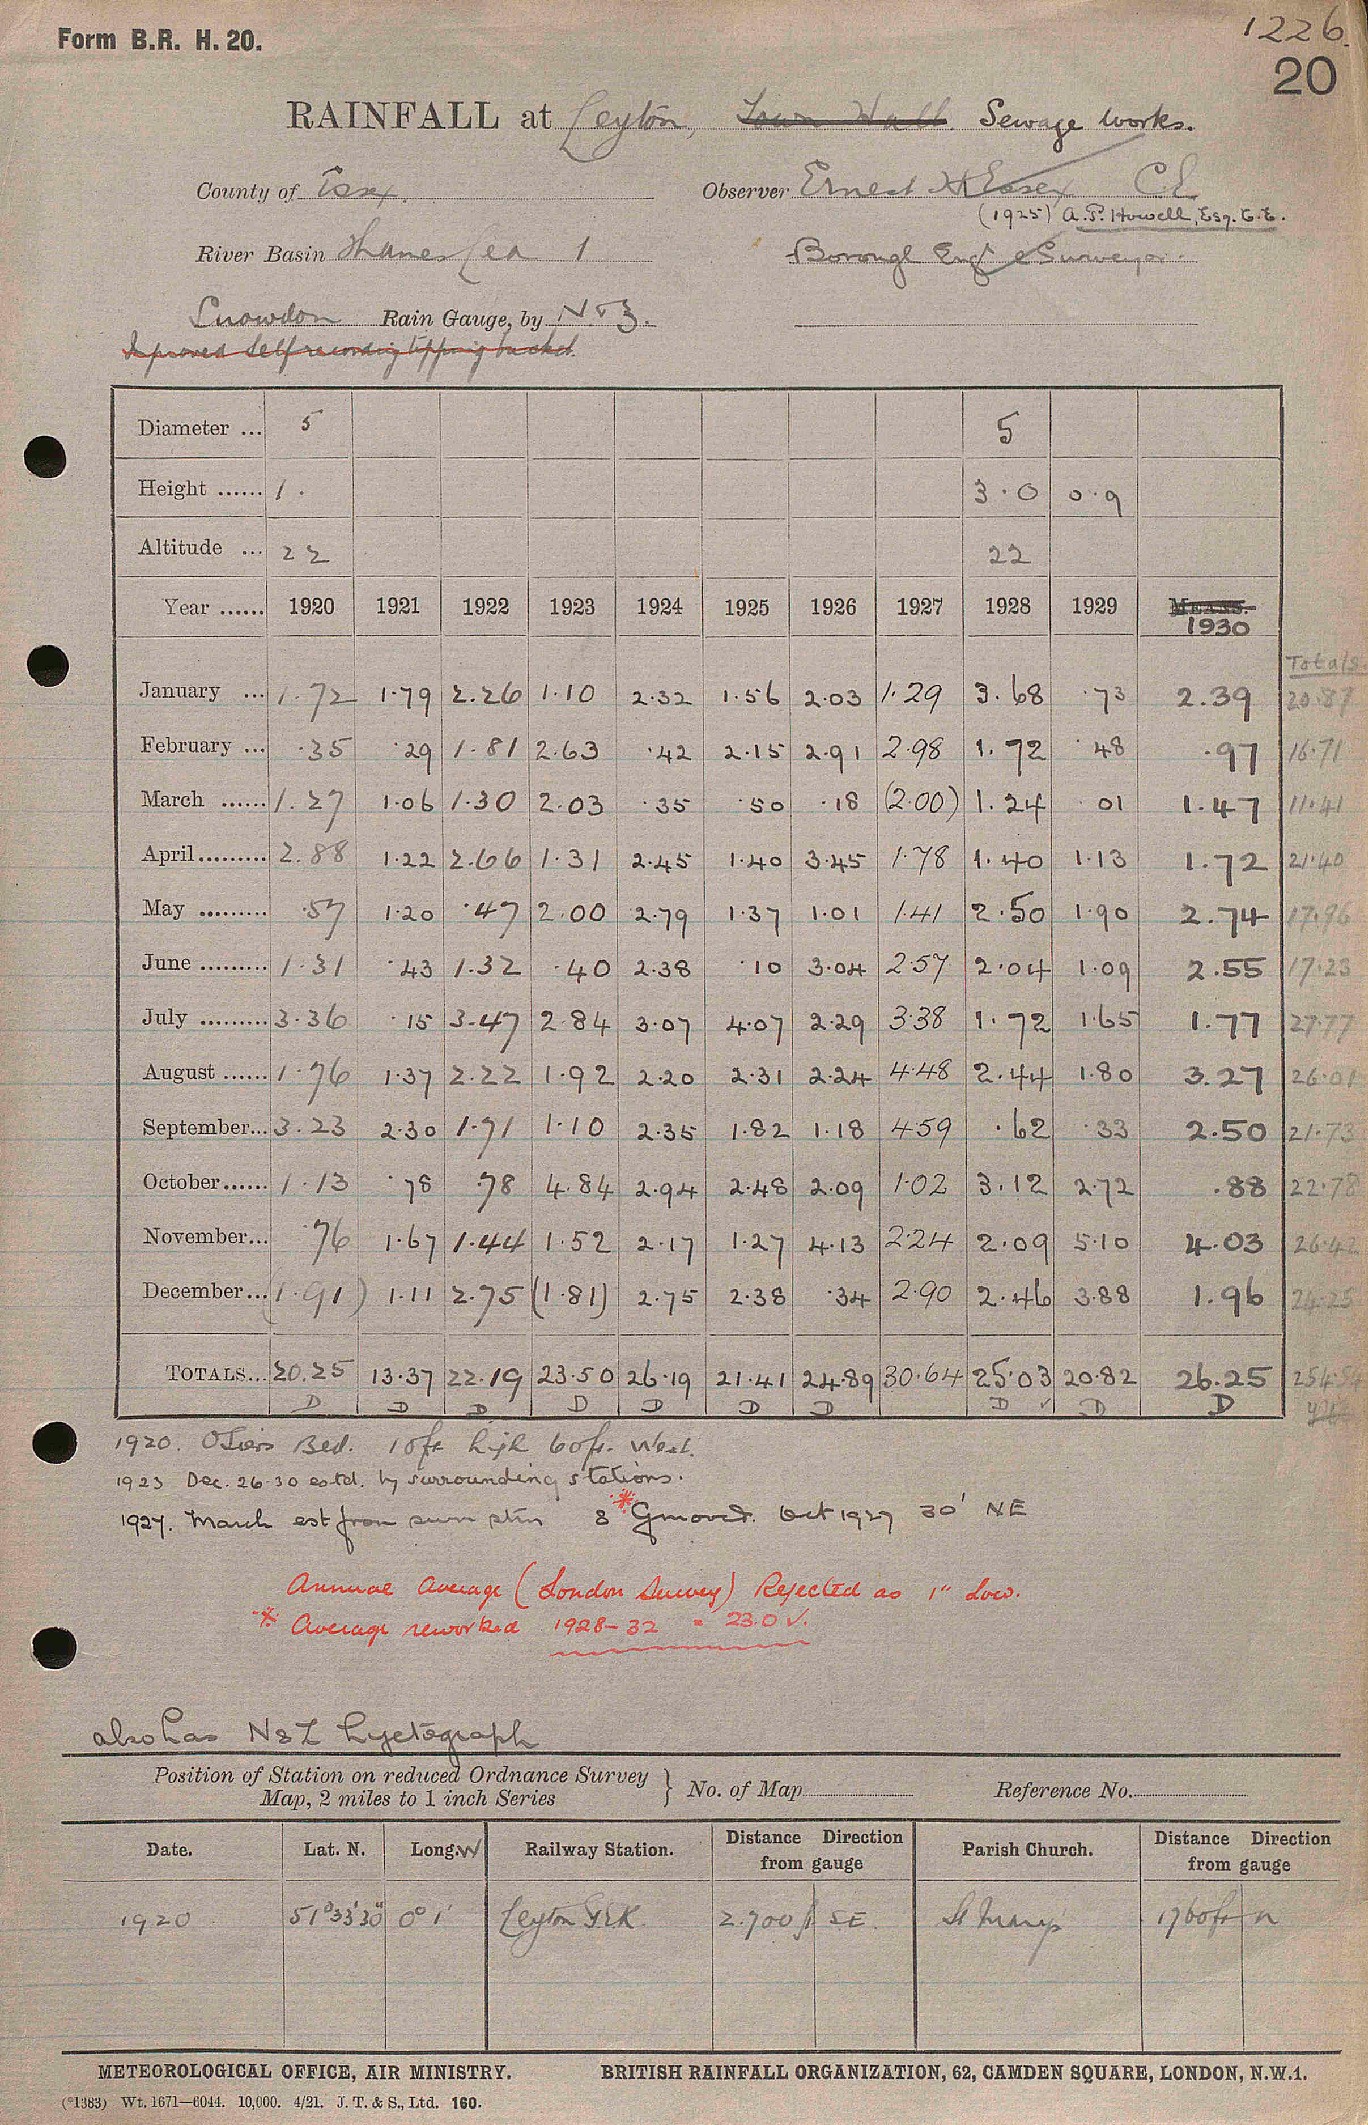 Form B.R. H. 20.
1226.
20
RAINFALL at Leyton, Town Hall. Sewage Works.
County of Essex. Observer Ernest H Essex C.E.
(1925) A.P. Howell, Esq. C.E.
River Basin Thames Lea 1 Borough Eng & Surveyor.
Snowdon Rain Gauge, by N & Z.
Improved Self recording tipping bucket.
Diameter ... 5 5
Height ...... 1. 3.0 0.9
Altitude ... 22 22
Year ...... 1920 1921 1922 1923 1924 1925 1926 1927 1928 1929 MEANS. 1930
Totals
January ... 1.72 1.79 2.26 1.10 2.32 1.56 2.03 1.29 3.68 .73 2.39 20.87
February ... .35 .29 1.81 2.63 .42 2.15 2.91 2.98 1.72 .48 .97 16.71
March ...... 1.27 1.06 1.30 2.03 .35 .50 .18 (2.00) 1.24 .01 1.47 11.41
April ......... 2.88 1.22 2.66 1.31 2.45 1.40 3.45 1.78 1.40 1.13 1.72 21.40
May ......... .57 1.20 .47 2.00 2.79 1.37 1.01 1.41 2.50 1.90 2.74 17.96
June ......... 1.31 .43 1.32 .40 2.38 .10 3.04 2.57 2.04 1.09 2.55 17.23
July ......... 3.36 .15 3.47 2.84 3.07 4.07 2.29 3.38 1.72 1.65 1.77 27.77
August ...... 1.76 1.37 2.22 1.92 2.20 2.31 2.24 4.48 2.44 1.80 3.27 26.01
September... 3.23 2.30 1.71 1.10 2.35 1.82 1.18 4.59 .62 .33 2.50 21.73
October...... 1.13 .78 .78 4.84 2.94 2.48 2.09 1.02 3.12 2.72 .88 22.78
November... .76 1.67 1.44 1.52 2.17 1.27 4.13 2.24 2.09 5.10 4.03 26.42
December... (1.91) 1.11 2.75 (1.81) 2.75 2.38 .34 2.90 2.46 3.88 1.96 24.25
TOTALS... 20.25 13.37 22.19 23.50 26.19 21.41 24.89 30.64 25.03 20.82 26.25 254.54
D D D D D D D D ✓ D D
1920. Osiers Bed. 10ft high 60ft. West.
1923 Dec. 26-30 estd. by surrounding stations.
1927. March est from surrn stns & * G moved. Oct 1927 30' NE
Annual Average (London Survey) Rejected as 1" Low.
* Average reworked 1928-32 = 23.0 ✓.
also has N & Z Hyetograph
Position of Station on reduced Ordnance Survey Map, 2 miles to 1 inch Series } No. of Map Reference No.
Date. Lat. N. Long. W Railway Station. Distance Direction from gauge Parish Church. Distance Direction from gauge
1920 51°33'30" 0° 1' Leyton G.E.R. 2.700 ft SE. St Mary's 1760ft N
METEOROLOGICAL OFFICE, AIR MINISTRY. BRITISH RAINFALL ORGANIZATION, 62, CAMDEN SQUARE, LONDON, N.W.1.
(*1383) Wt. 1671—6044. 10,000. 4/21. J. T. & S., Ltd. 160.